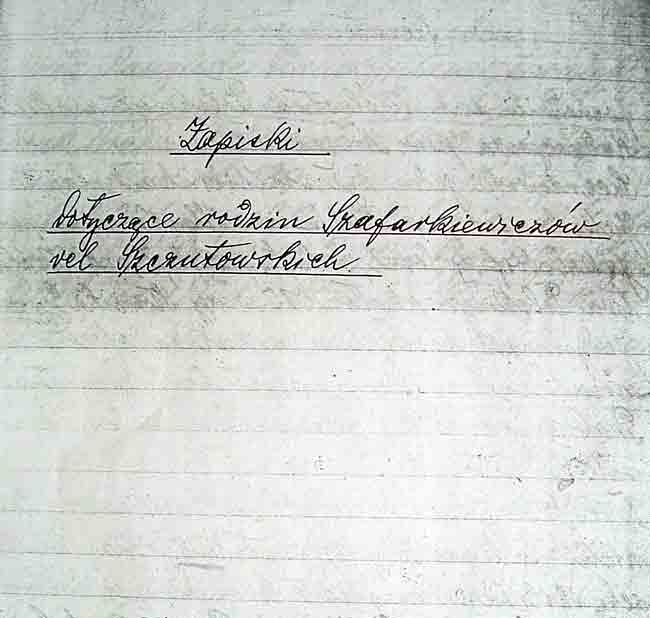 Zapiski
Dotyczące rodzin Szafarkiewiczów
vel Szczutowskich.